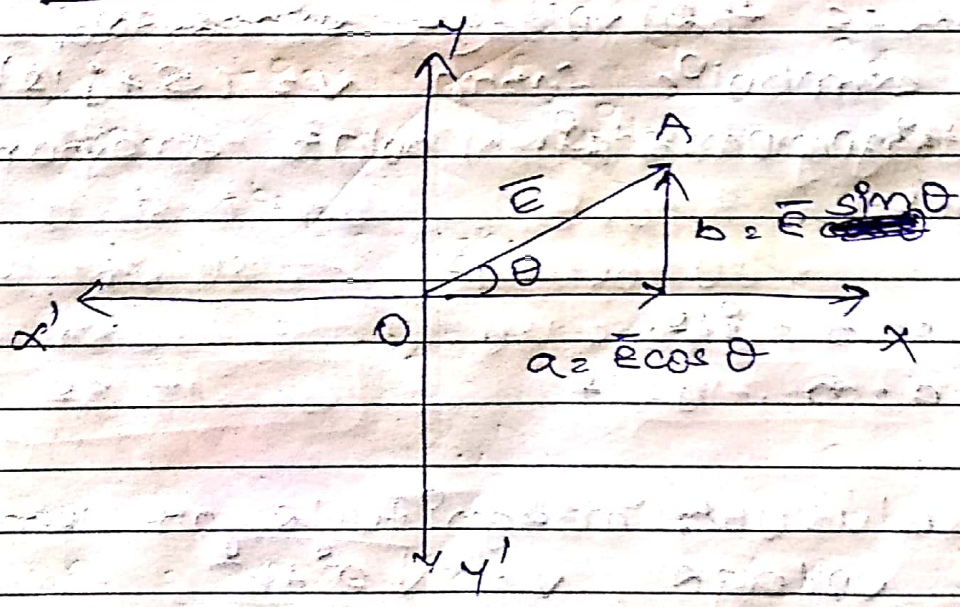 y
A
E̅
b = E̅ sinθ
θ
x'
O
x
a = E̅cos θ
y'